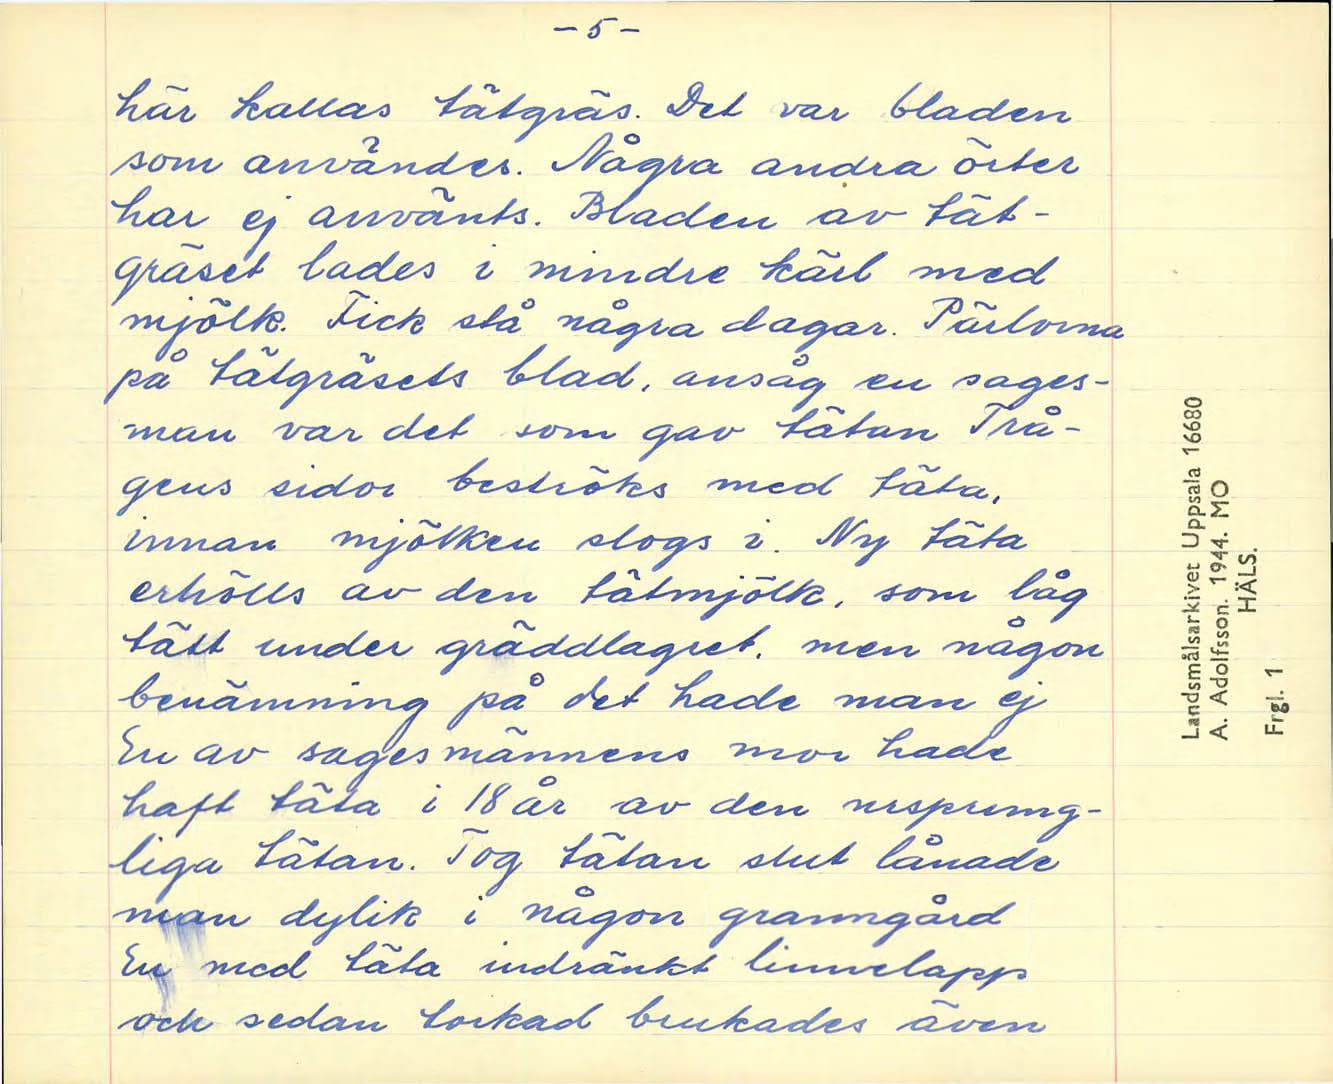 -5-
här kallas tätgräs. Det var bladen
som användes. Några andra örter
har ej använts. Bladen av tät-
gräset lades i mindre kärl med
mjölk. Fick stå några dagar. Pärlorna
på tätgräsets blad, ansåg en sages-
man var det som gav tätan Trå-
gens sidor beströks med täta,
innan mjölken slogs i. Ny täta
erhölls av den tätmjölk, som låg
tätt under gräddlagret, men någon
benämning på det hade man ej
En av sagesmännens mor hade
haft täta i 18 år av den ursprung-
liga tätan. Tog tätan slut lånade
man dylik i någon granngård
En med täta indränkt linnelapp
och sedan torkad brukades även
Landsmålsarkivet Uppsala 16680
A. Adolfsson. 1944. MO
HÄLS.
Frgl. 1